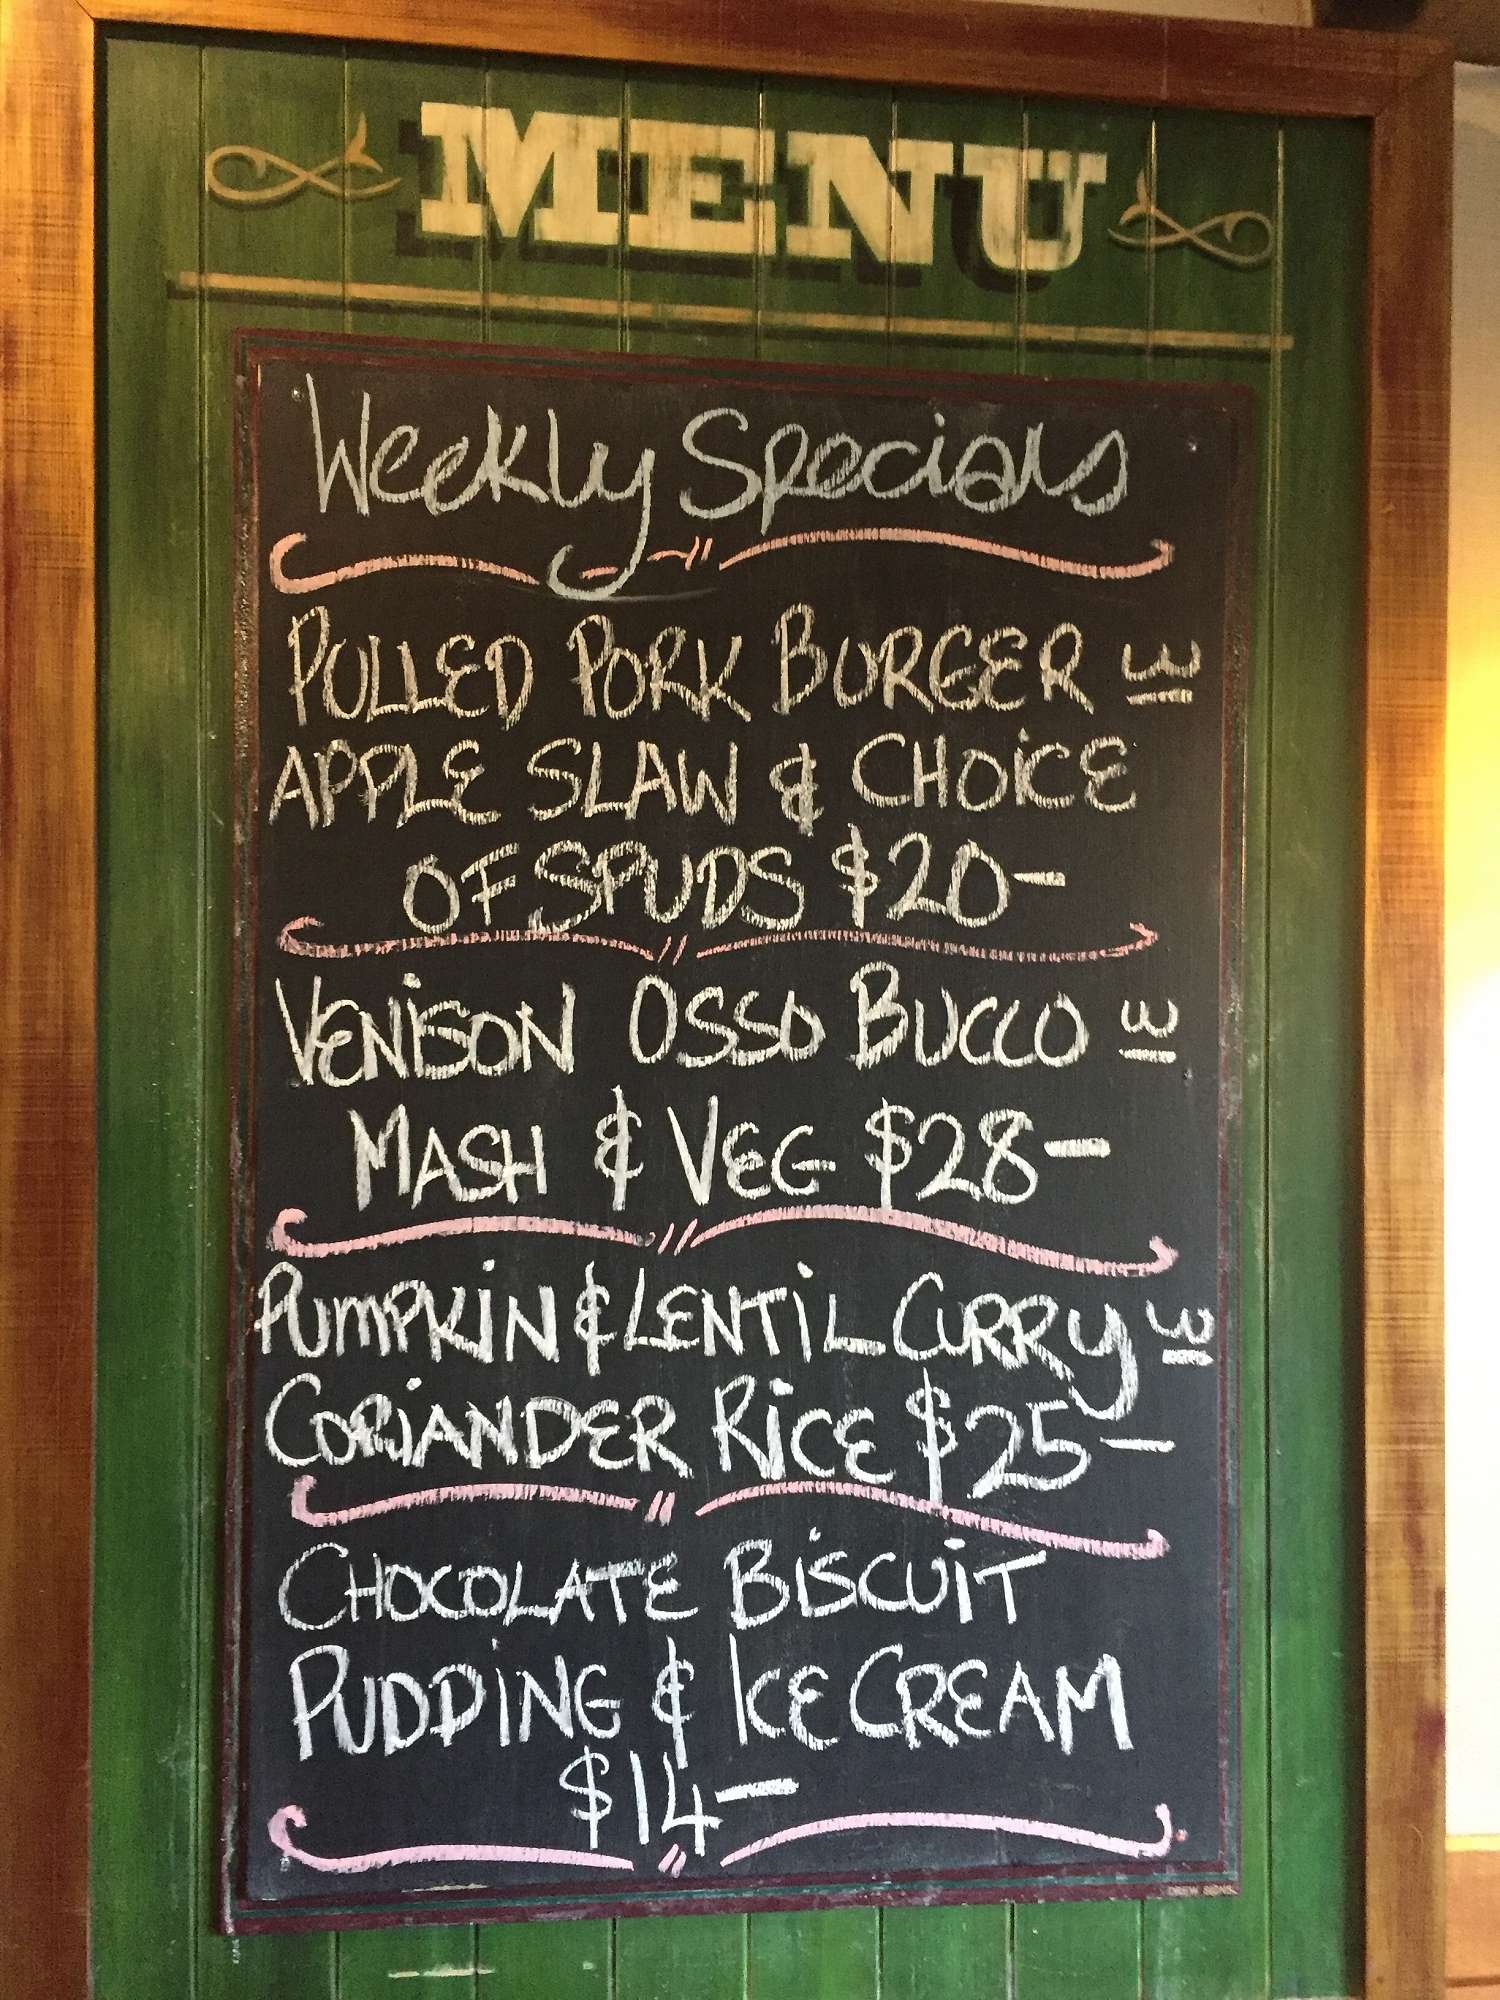 MENU
Weekly Specials
PULLED PORK BURGER W
APPLE SLAW & CHOICE
OF SPUDS $20-
VENISON OSSO BUCCO W
MASH & VEG $28-
PUMPKIN & LENTIL CURRY W
CORIANDER RICE $25-
CHOCOLATE BISCUIT
PUDDING & ICE CREAM
$14-
DREW SIGNS